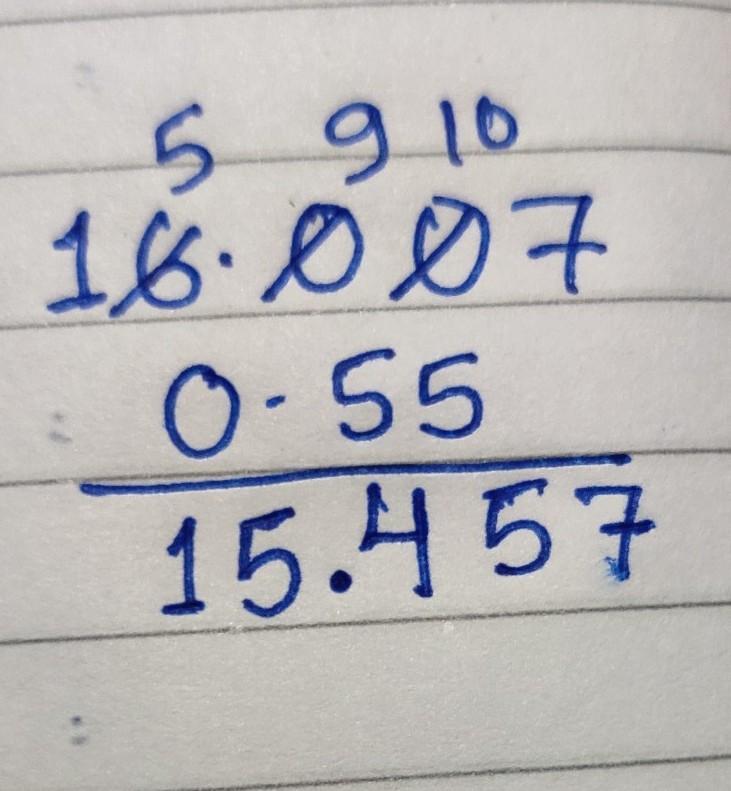 5 9 10
16.007
0.55
15.457